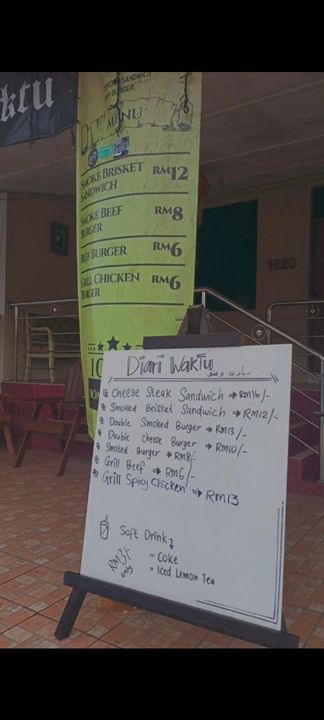 ktu
SMOKE SANDWICH
BURGER
MENU
SMOKE BRISKET SANDWICH RM12
SMOKE BEEF BURGER RM8
BEEF BURGER RM6
GRILL CHICKEN BURGER RM6
1820
Diari Waktu
Cheese Steak Sandwich → RM16/-
Smoked Brisket Sandwich → RM12/-
Double Smoked Burger → RM13/-
Double Cheese Burger → RM10/-
Smoked Burger → RM8/-
Grill Beef → RM6/-
Grill Spicy Chicken → RM13
Soft Drink
RM3/- only
- Coke
- Iced Lemon Tea